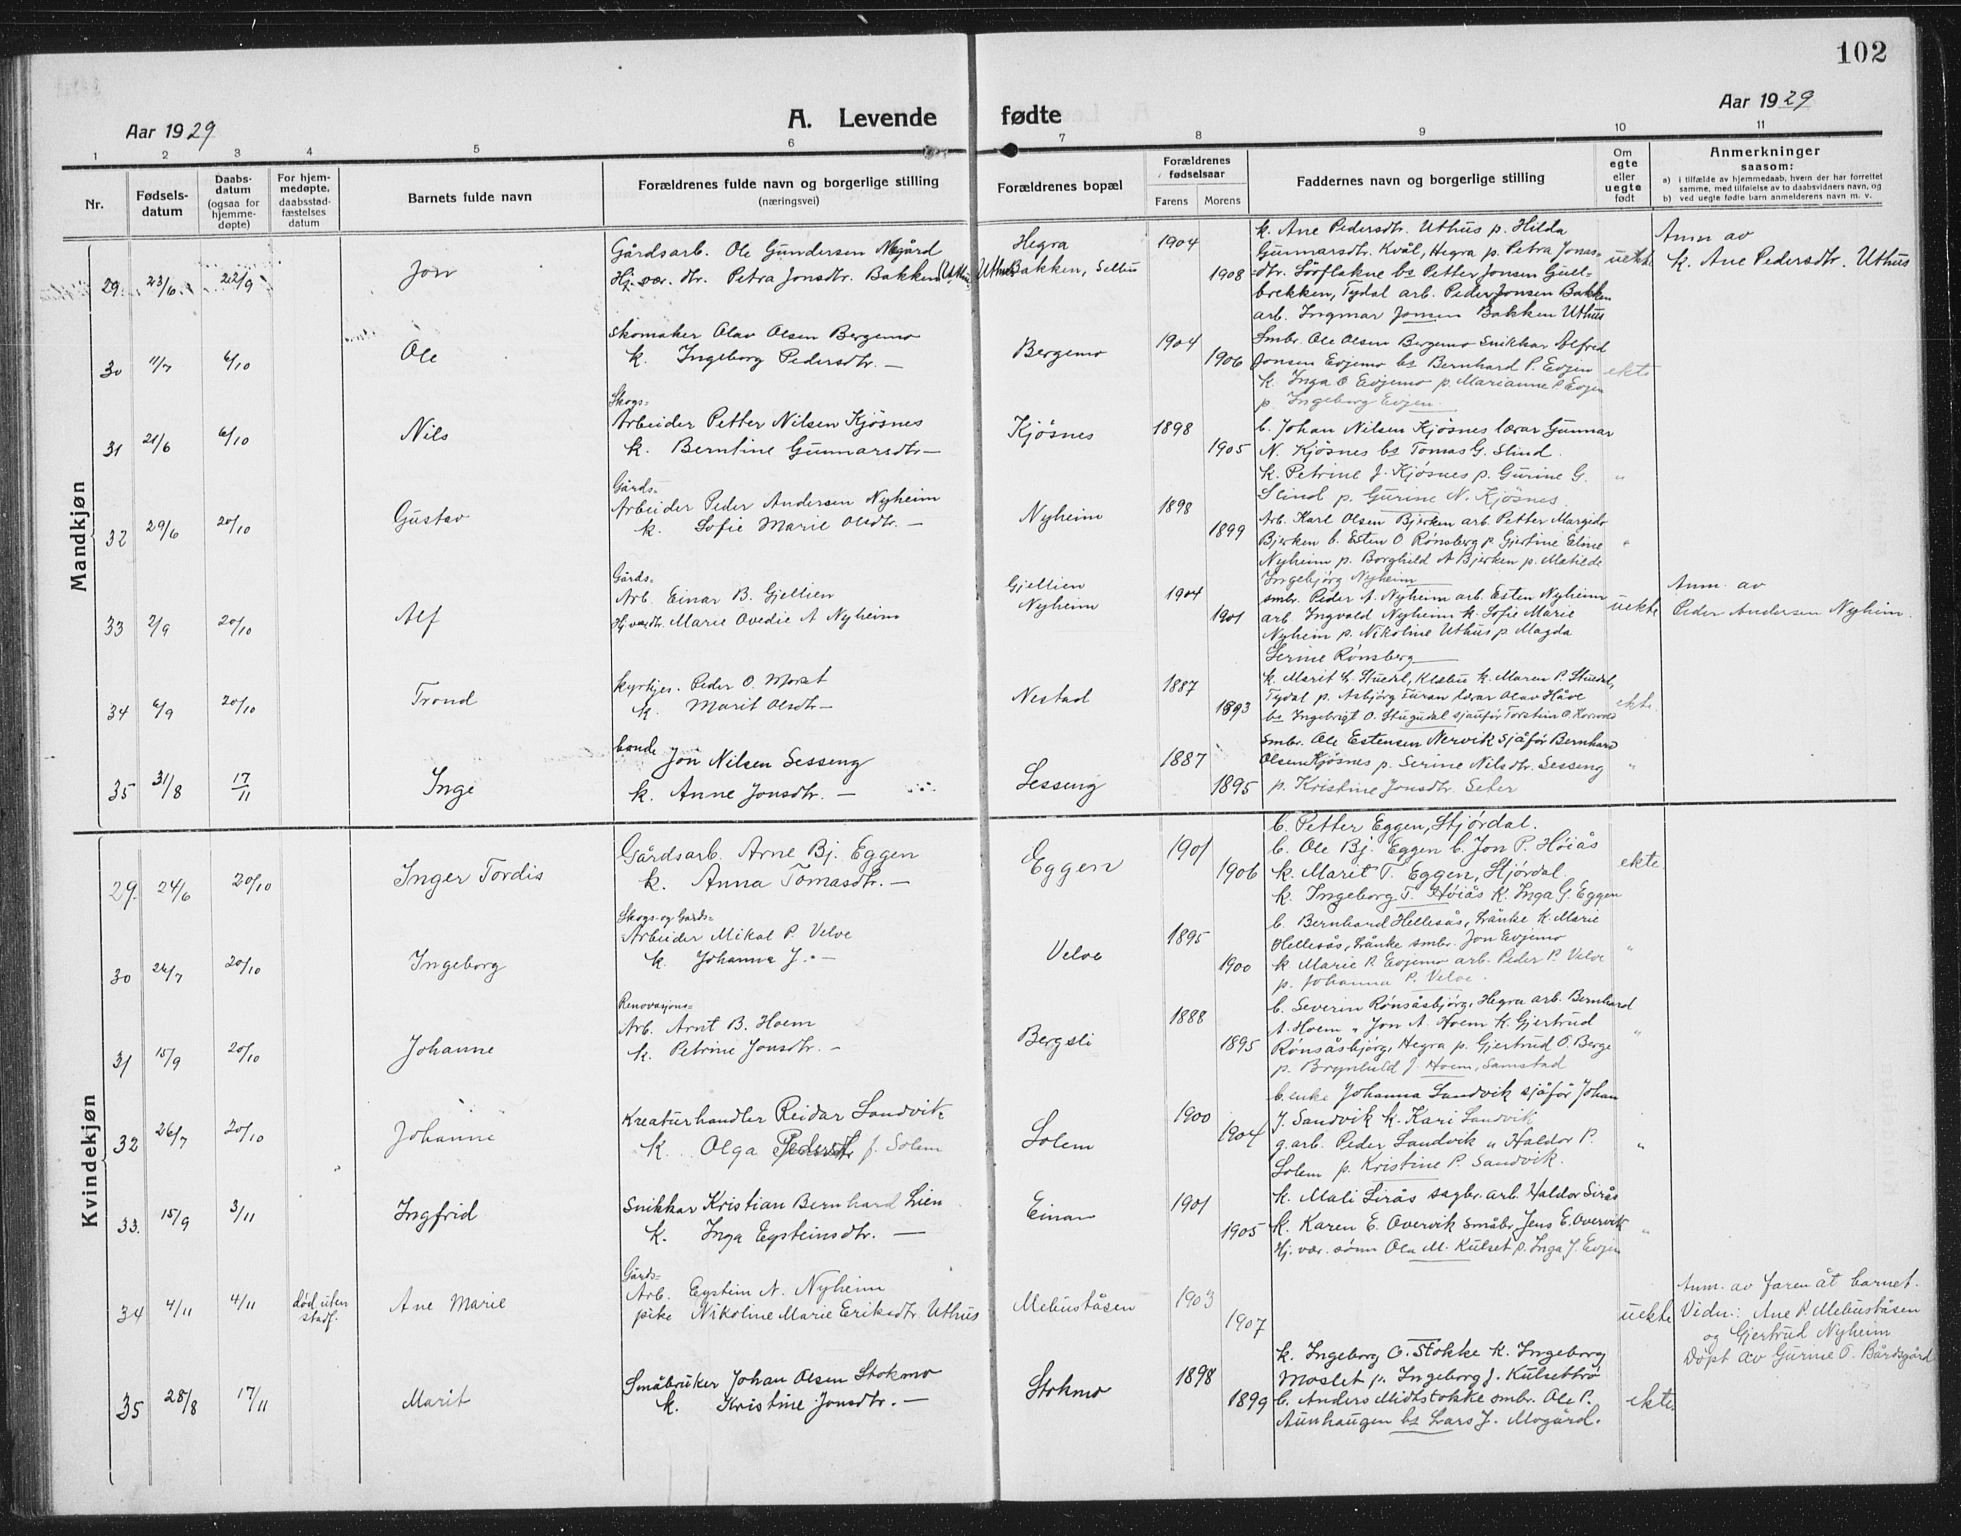 102
Aar 1929
A. Levende fødte
Aar 1929
1 2 3 4 5 6 7 8 9 10 11
Nr.
Fødsels-
datum
Daabs-
datum
(ogsaa for
hjemme-
døpte)
For hjem-
medøpte,
daabsstad-
fæstelses
datum
Barnets fulde navn
Forældrenes fulde navn og borgerlige stilling
(næringsvei)
Forældrenes bopæl
Forældrenes
fødselsaar
Farens Morens
Faddernes navn og borgerlige stilling
Om
egte
eller
uegte
født
Anmerkninger
saasom:
a) i tilfælde av hjemmedaab, hvem der har forrettet
samme, med tilføielse av to daabsvidners navn, og
b) ved uegte fødte barn anmelderens navn m. v.
Mandkjøn
29 23/6 22/9 Jon
Gårdsarb. Ole Gundersen Megård
Hj. vær. dtr. Petra Jonsdtr. Bakken (Uthus)
Hegra
Bakken, Selbu
1904
1908
k. Ane Pedersdtr. Uthus p. Hilda
Gunnarsdtr. Kvål, Hegra p. Petra Jonas-
dtr. Sörflakne bs Petter Jonsen
brekken, Tydal arb. Peder Jonsen Bakken
arb. Ingmar Jonsen Bakken Uthus
uekte
Anm av
k. Ane Pedersdtr. Uthus
30 11/7 6/10 Ole
Skomaker Olav Olsen Bergemo
k. Ingeborg Pedersdtr. —
Bergemo
1904
1906
Smbr. Ole Olsen Bergemo Snikkar Alfred
Jonsen Evjemo bs Bernhard P. Evjen
k. Inga O Evjemo p. Marianne P. Evjen
p. Ingeborg Evjen.
ekte
31 21/6 6/10 Nils
Skogs=
Arbeider Petter Nilsen Kjösnes
k. Berntine Gunnarsdtr —
Kjösnes
1898
1905
b. Johan Nilsen Kjösnes lærar Gunnar
N. Kjösnes bs Tomas G. Slind.
k. Petrine J. Kjösnes p. Gurine G.
Slind p. Gurine N. Kjösnes
"
32 29/6 20/10 Gustav
Gårds=
Arbeider Peder Andersen Nyheim
k. Sofie Marie Olsdtr. —
Nyheim
1898
1899
Arb. Karl Olsen Bjerken arb. Petter Margido
Bjerken b. Esten O Rönsberg p. Gjertine Eline
Nyheim p. Borghild A Bjerken p. Matilde
Ingebjörg Nyheim
"
33 2/9 20/10 Alf
Gårds=
Arb. Einar B. Gjellien
Hj. vær. dtr. Marie Ovedie A Nyheim
Gjellien
Nyheim
1904
1901
smbr. Peder A. Nyheim arb. Esten Nyheim
arb Ingvald Nyheim k. Sofie Marie
Nyheim p. Nikoline Uthus p Magda
Serine Rönsberg
uekte
Anm. av
Peder Andersen Nyheim.
34 6/9 20/10 Trond
kyrkjes. Peder O. Morset
k. Marit Olsdtr —
Nestad
1887
1893
Tydal p. Asbjörg Turan lærar Olav Håve
bs Ingebrigt O. Stugudal sjauför Torstein O.
ekte.
35 31/8 17/11 Inge
bonde Jon Nilsen Sesseng
k. Anne Jonsdtr. —
Sesseng
1887
1895
smbr. Ole Estensen Nervik Sjåför Bernhard
Olsen Kjösnes p. Serine Nilsdtr. Sesseng
p. Kristine Jonsdtr. Seter
"
Kvindekjøn
29. 24/6 20/10 Inger Tordis
Gårdsarb. Arne Bj. Eggen
k. Anna Tomasdtr. —
Eggen
1901
1906
b. Petter Eggen, Stjördal.
b. Ole Bj. Eggen b. Jon P. Höiås
k. Marit T. Eggen, Stjördal
k. Ingeborg T. Höiås k. Inga G. Eggen
ekte.
30 26/7 20/10 Ingeborg
Skogs- og Gårds=
Arbeider Mikal P. Velve
k. Johanna J. —
Velve
1895
1900
b. Bernhard Hellesås, Lånke k. Marie
Hellesås, Lånke smbr. Jon Evjemo
k. Marie P. Evjemo arb. Peder P. Velve
p. Johanna P. Velve
"
31 15/9 20/10 Johanne
Renovasjons=
Arb. Arnt B. Hoem
k. Petrine Jonsdtr. —
Bergsli
1888
1895
b. Severin Rönsåsbjörg, Hegra arb. Bernhard
A. Hoem " Jon A. Hoem k. Gjertrud
Rönsåsbjörg, Hegra p. Gjertrud O. Berge
p. Brynhild J. Hoem, Samstad
"
32 26/7 20/10 Johanne
Kreaturhandler Reidar Sandvik
k. Olga Pedersdtr f. Solem
Solem
1900
1904
b. enke Johanna Sandvik sjåför Johan
J. Sandvik k. Kari Sandvik
g. arb. Peder Sandvik " Haldor P.
Solem p. Kristine P. Sandvik.
"
33. 15/9 3/11 Ingfrid
Snikkar Kristian Bernhard Lien
k. Inga Eysteinsdtr. —
Einan
1901
1905
k. Mali Sirås sagbr. arb. Haldor Sirås
k. Karen E. Overvik småbr Jens E. Overvik
Hj. vær. sönn Ola M. Kulset p. Inga J. Evjen
"
34 4/11 4/11 död uten
stadf.
Ane Marie
Gårds=
Arb. Eystein N. Nyheim
pike Nikoline Marie Eriksdtr Uthus
Mebuståsen
1903
1907
—
uekte
Anm. av faren åt barnet.
Vidn: Ane P. Mebuståsen
og Gjertrud Nyheim
Döpt av Gurine O. Bårdsgård
35 28/8 17/11 Marit
Småbruker Johan Olsen Stokmo
k. Kristine Jonsdtr. —
Stokmo
1898
1899
k. Ingeborg O. Stokke k. Ingeborg
Moslet p. Ingeborg J. Kulsettrö
b. Anders Midtstokke smbr. Ole P.
Aunhaugen bs Lars J. Mogård.
ekte.